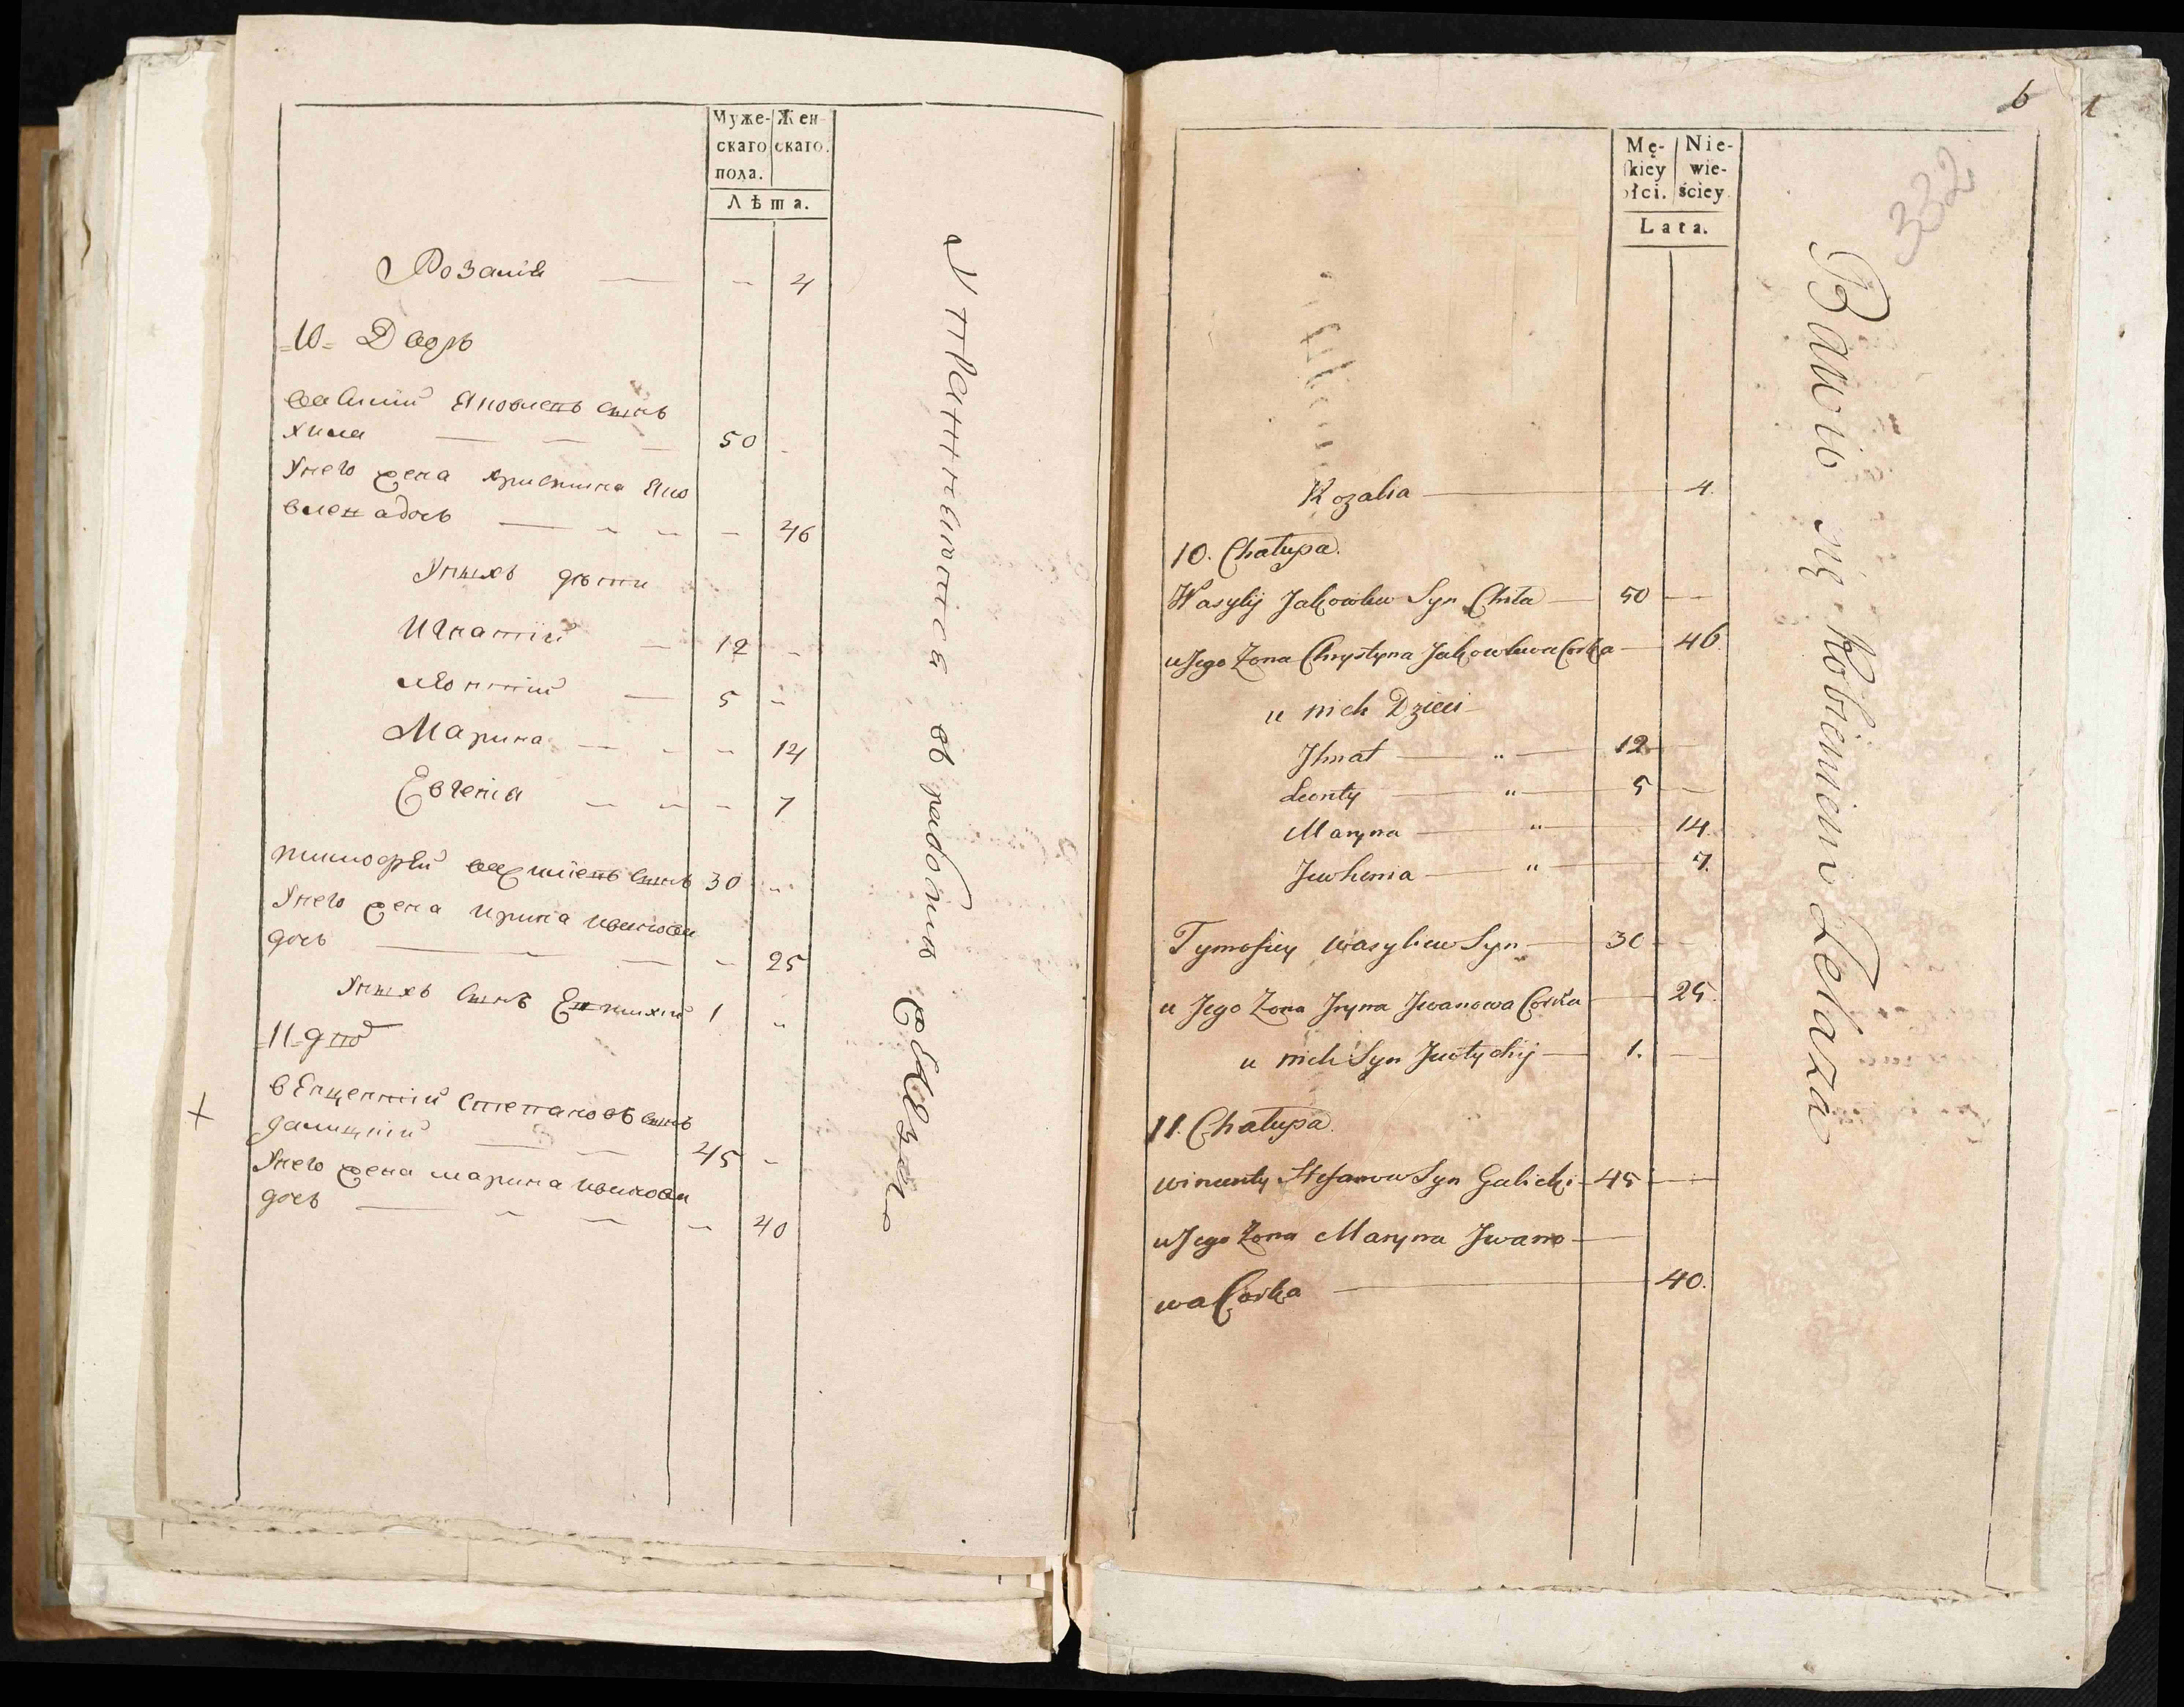 Муже- Жен-
скаго скаго.
пола.
Лѣта.
Розалія — - 4
=10= Дворъ
василій Яковлевъ сынъ
хила — 50 -
Унего жена христина Яко
влева дочь — - 46
Унихъ дѣти
Игнатій — 12 -
леонтій — 5 -
Марина — - 14
Евгенія — - 7
тимофѣй василіевъ сынъ 30 -
Унего жена ирина иванова
дочь — - 25
Унихъ сынъ Евтихій 1 -
=11= двор
+
Венцентій степановъ сынъ
галицкій — 45 -
Унего жена марина иванова
дочь — - 40
Упражняются въ работѣ
6
1
332
Mę- Nie-
skiey wie-
płci. ściey
Lata.
Rozalia — 4.
10. Chałupa.
Wasylij Jakowlew Syn Chiła — 50 —
u Jego Zona Chrystyna Jakowlewa Corka — 46.
u nich Dzieci
Ihnat — „ — 12 —
Leonty — „ — 5 —
Maryna — „ — 14.
Jewhenia — „ — 7.
Tymofiey Wasyliew Syn — 30 —
u Jego Zona Jryna Jwanowa Corka — 25.
u nich Syn Jewtychij — 1. —
11. Chałupa.
Wincenty Stefanow Syn Galicki — 45 —
u Jego Zona Maryna Jwano —
wa Corka — 40.
Bawio się Robieniem Zelaza